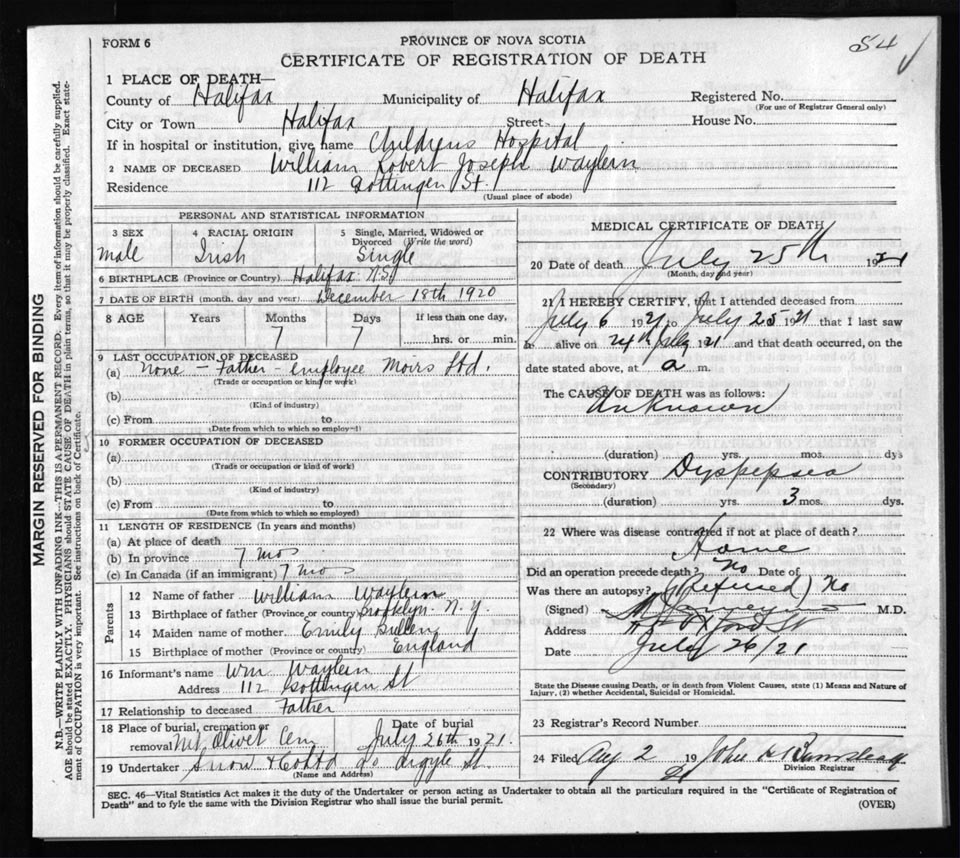 FORM 6
PROVINCE OF NOVA SCOTIA
54
CERTIFICATE OF REGISTRATION OF DEATH
1 PLACE OF DEATH—
County of Halifax Municipality of Halifax Registered No.
(For use of Registrar General only)
City or Town Halifax Street House No.
If in hospital or institution, give name Childrens Hospital
2 NAME OF DECEASED William Robert Joseph Waylein
Residence 112 Gottingen St.
(Usual place of abode)
PERSONAL AND STATISTICAL INFORMATION
3 SEX 4 RACIAL ORIGIN 5 Single, Married, Widowed or Divorced (Write the word)
Male Irish Single
6 BIRTHPLACE (Province or Country) Halifax N.S.
7 DATE OF BIRTH (month, day and year) December 18th 1920
8 AGE Years Months Days If less than one day,
7 7 hrs. or min.
9 LAST OCCUPATION OF DECEASED
(a) none - Father - employee Moirs Ltd.
(Trade or occupation or kind or work)
(b)
(Kind of industry)
(c) From to
(Date from which to which so employ=l)
10 FORMER OCCUPATION OF DECEASED
(a)
(Trade or occupation or kind of work)
(b)
(Kind of industry)
(c) From to
(Date from which to which so employed)
11 LENGTH OF RESIDENCE (In years and months)
(a) At place of death
(b) In province 7 mos
(c) In Canada (if an immigrant) 7 mos
Parents
12 Name of father William Waylein
13 Birthplace of father (Province or country) Brooklyn N.Y.
14 Maiden name of mother Emily Bullen
15 Birthplace of mother (Province or country) England
16 Informant's name Wm Waylein
Address 112 Gottingen St
17 Relationship to deceased Father
18 Place of burial, cremation or removal Mt Olivet Cem Date of burial July 26th 1921.
19 Undertaker Snow & Co Ltd Argyle St.
(Name and Address)
MEDICAL CERTIFICATE OF DEATH
20 Date of death July 25th 1921
(Month, day and year)
21 I HEREBY CERTIFY, that I attended deceased from
July 6 1921 to July 25 1921 that I last saw
h alive on 24th July 1921 and that death occurred, on the
date stated above, at a m.
The CAUSE OF DEATH was as follows:
Unknown
(duration) yrs. mos. dys
CONTRIBUTORY Dyspepsea
(Secondary)
(duration) yrs. 3 mos. dys.
22 Where was disease contracted if not at place of death?
Home
Did an operation precede death? No Date of
Was there an autopsy? (Refused) No
(Signed) M.D.
Address Oxford St
Date July 26/21
State the Disease causing Death, or in death from Violent Causes, state (1) Means and Nature of
Injury, (2) whether Accidental, Suicidal or Homicidal.
23 Registrar's Record Number
24 Filed Aug 2 19 21 John
Division Registrar
SEC. 46—Vital Statistics Act makes it the duty of the Undertaker or person acting as Undertaker to obtain all the particulars required in the "Certificate of Registration of
Death" and to fyle the same with the Division Registrar who shall issue the burial permit.
(OVER)
MARGIN RESERVED FOR BINDING
N.B.—WRITE PLAINLY WITH UNFADING INK—THIS IS A PERMANENT RECORD. Every item of information should be carefully supplied.
AGE should be stated EXACTLY. PHYSICIANS should STATE CAUSE OF DEATH in plain terms, so that it may be properly classified. Exact state-
ment of OCCUPATION is very important. See instructions on back of Certificate.